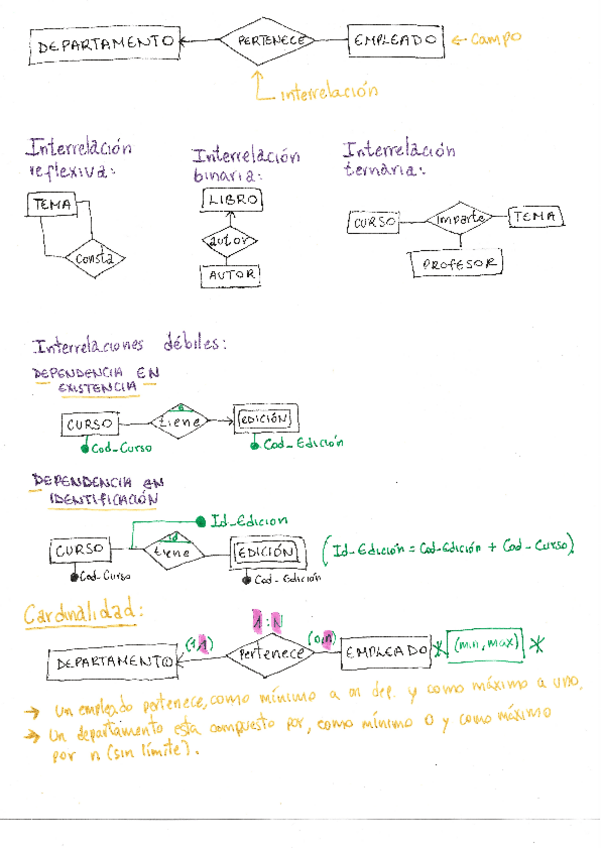 DEPARTAMENTO PERTENECE EMPLEADO ← Campo
interrelación
Interrelación reflexiva:
TEMA
Consta
Interrelación binaria:
LIBRO
autor
AUTOR
Interrelación ternária:
CURSO imparte TEMA
PROFESOR
Interrelaciones débiles:
DEPENDENCIA EN
EXISTENCIA
CURSO tiene EDICIÓN
Cod_Curso Cod_Edición
DEPENDENCIA EN
IDENTIFICACIÓN
Id_Edicion
CURSO id tiene EDICIÓN (Id_Edición = Cod_Edición + Cod_Curso)
Cod_Curso Cod_Edición
Cardinalidad:
1:N
DEPARTAMENTO (1,1) Pertenece (0,n) EMPLEADO * (min, max) *
→ Un empleado pertenece, como mínimo a un dep. y como máximo a uno.
→ Un departamento esta compuesto por, como mínimo 0 y como máximo
por n (sin límite).